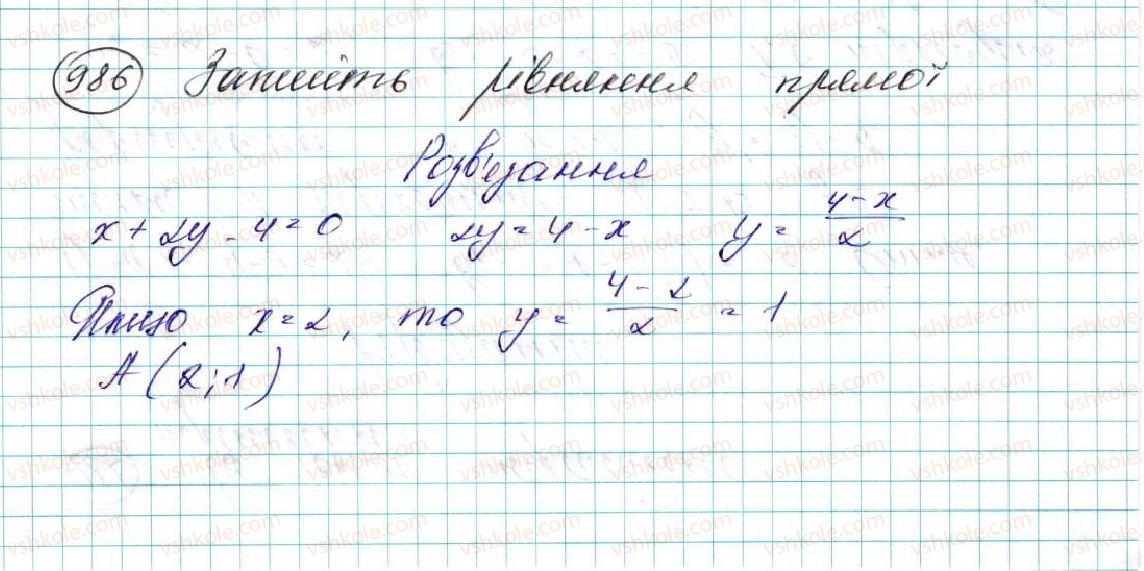 986 Запишіть рівняння прямої
Розв'язання
x + 2y - 4 = 0 2y = 4 - x y = (4 - x)/2
Якщо x = 2, то y = (4 - 2)/2 = 1
A (2; 1)